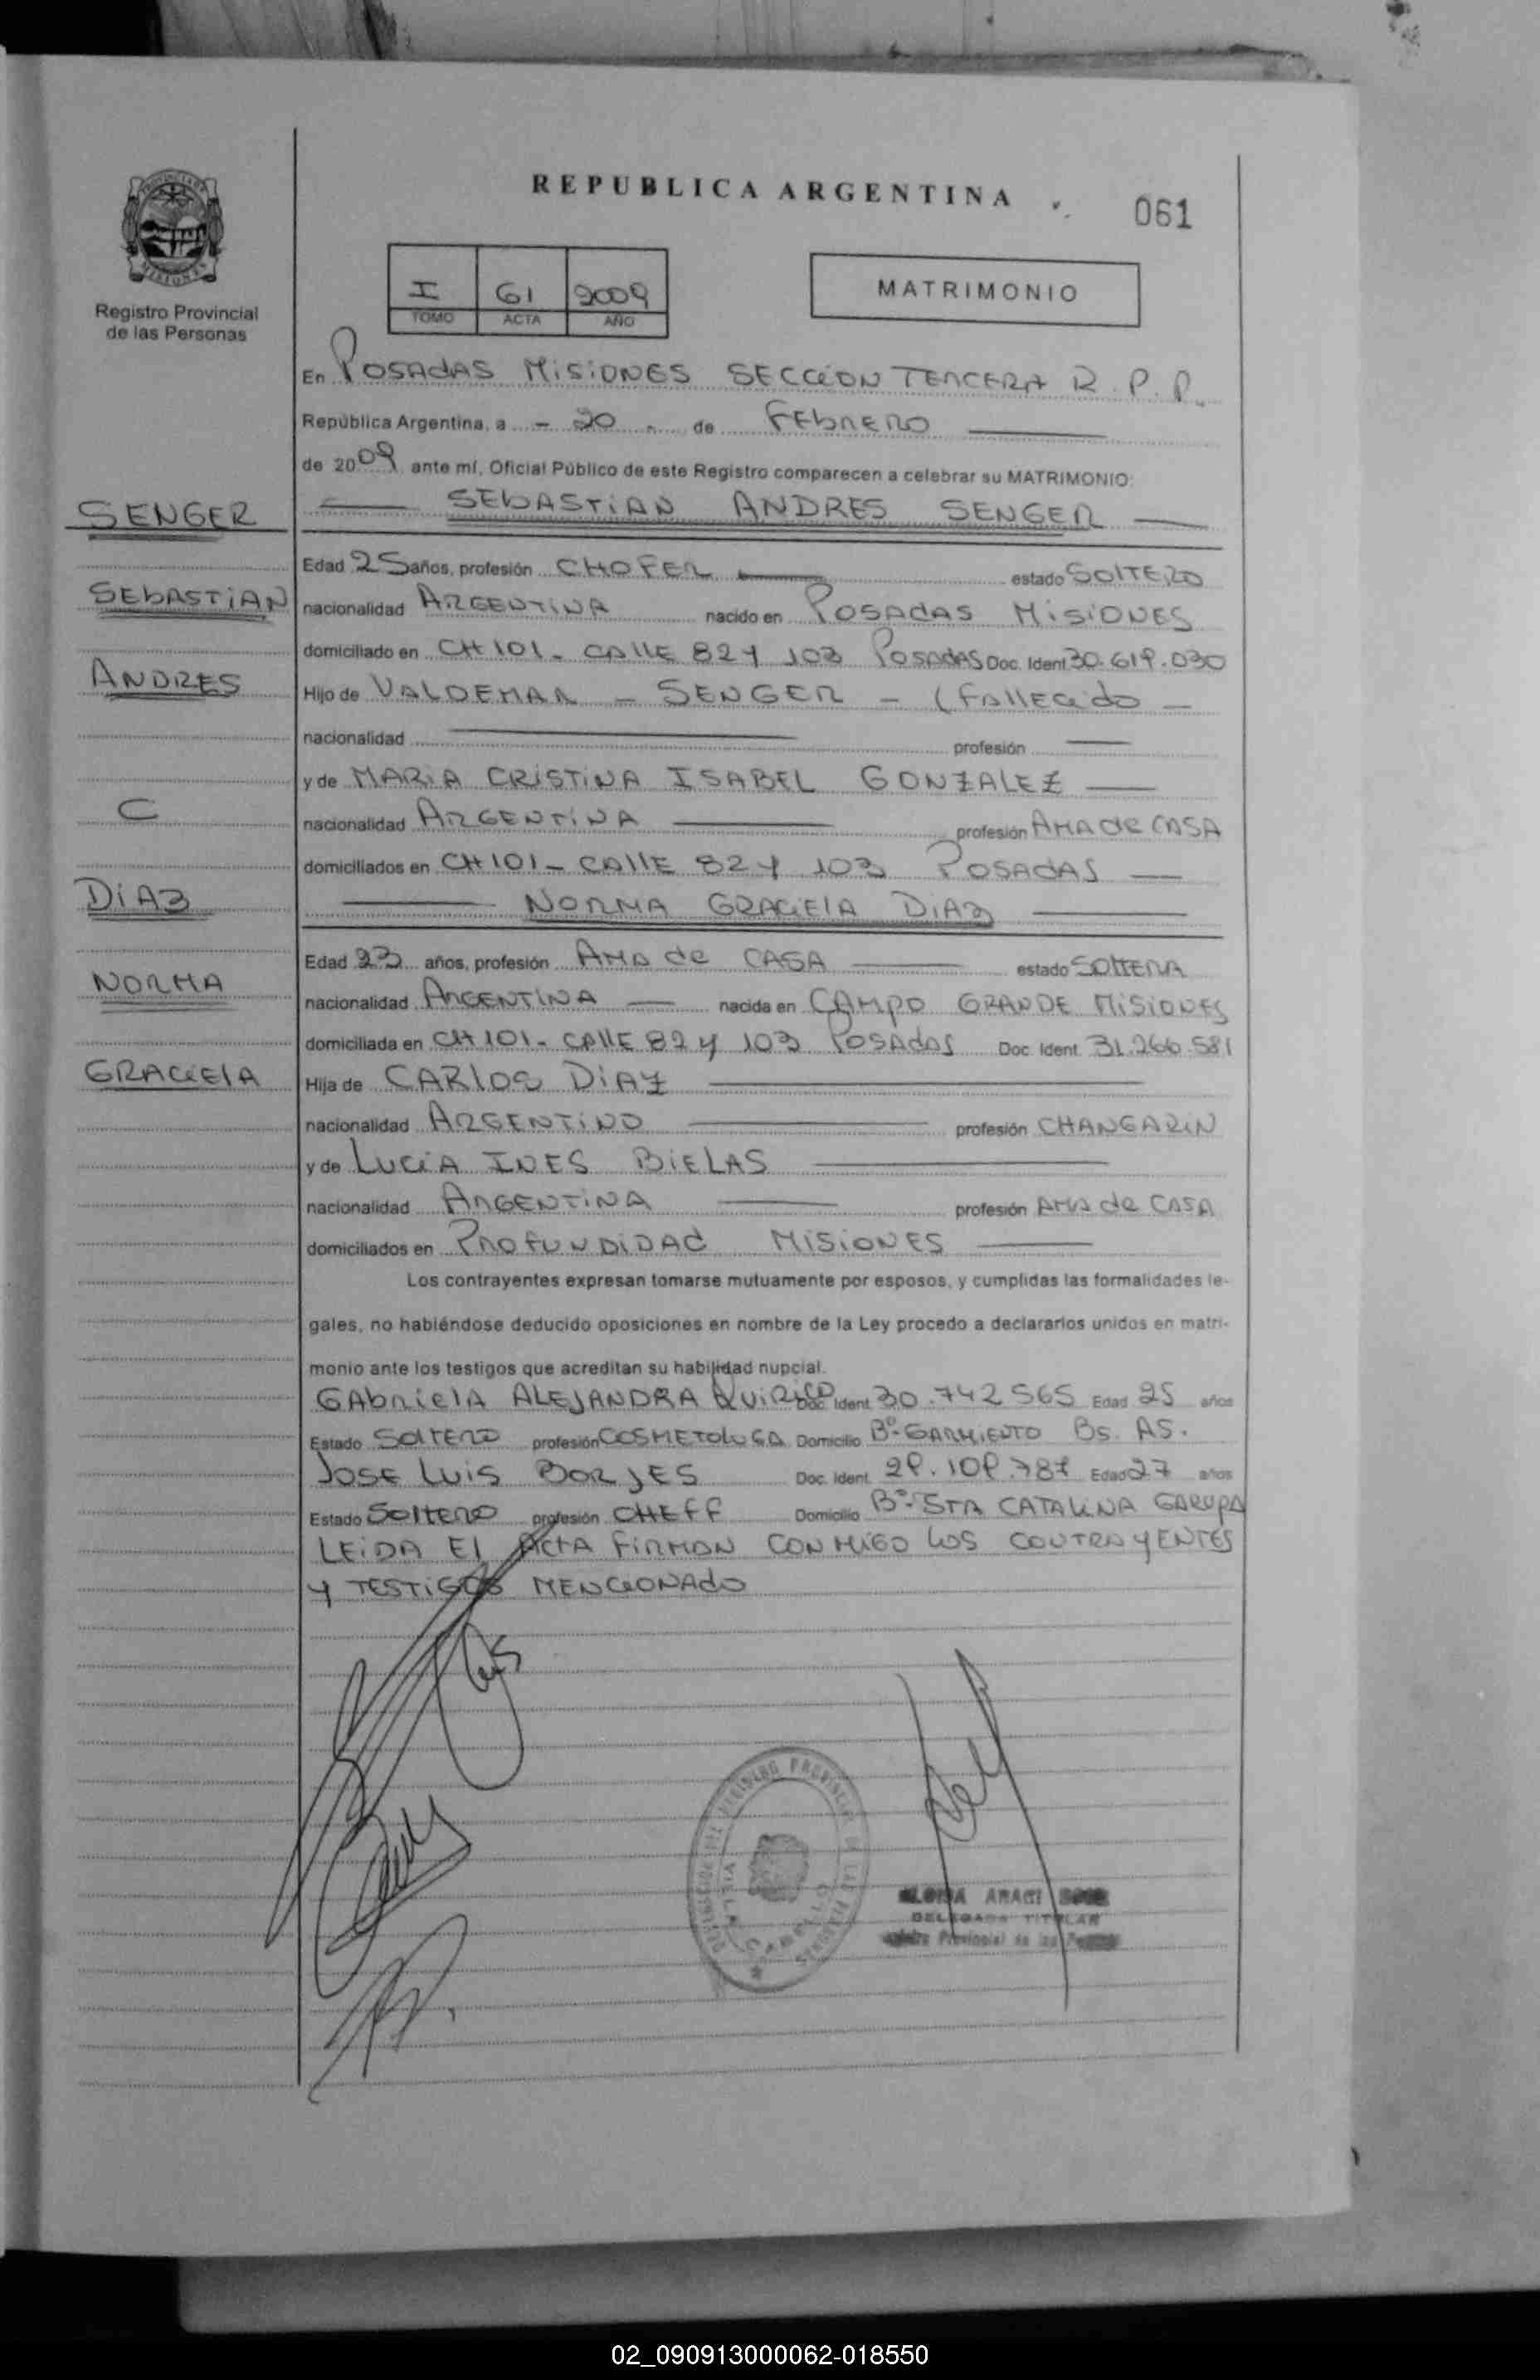 REPUBLICA ARGENTINA
061
PROVINCIA DE
MISIONES
Registro Provincial
de las Personas
I 61 2009
TOMO ACTA AÑO
MATRIMONIO
En POSADAS MISIONES SECCION TERCERA R.P.P.
República Argentina, a - 20 - de FEBRERO
de 2009 ante mí, Oficial Público de este Registro comparecen a celebrar su MATRIMONIO:
SENGER
SEBASTIAN ANDRES SENGER
Edad 25 años, profesión CHOFER estado SOLTERO
SEBASTIAN
nacionalidad ARGENTINA nacido en POSADAS MISIONES
domiciliado en CH 101 - CALLE 82 Y 103 POSADAS Doc. Ident. 30.619.030
ANDRES
Hijo de VALDEMAR - SENGER - (FALLECIDO -
nacionalidad profesión
y de MARIA CRISTINA ISABEL GONZALEZ
C
nacionalidad ARGENTINA profesión AMA de CASA
domiciliados en CH 101 - CALLE 82 Y 103 POSADAS
DIAZ
NORMA GRACIELA DIAZ
Edad 23 años, profesión AMA de CASA estado SOLTERA
NORMA
nacionalidad ARGENTINA nacida en CAMPO GRANDE MISIONES
domiciliada en CH 101 - CALLE 82 Y 103 POSADAS Doc. Ident. 31.266.581
GRACIELA
Hija de CARLOS DIAZ
nacionalidad ARGENTINO profesión CHANGARIN
y de LUCIA INES BIELAS
nacionalidad ARGENTINA profesión AMA de CASA
domiciliados en PROFUNDIDAD MISIONES
Los contrayentes expresan tomarse mutuamente por esposos, y cumplidas las formalidades le-
gales, no habiéndose deducido oposiciones en nombre de la Ley procedo a declararlos unidos en matri-
monio ante los testigos que acreditan su habilidad nupcial.
GABRIELA ALEJANDRA QUIRICO Doc. Ident. 30.742.565 Edad 25 años
Estado SOLTERO profesión COSMETOLOGA Domicilio Bº SARMIENTO Bs. AS.
JOSE LUIS BORJES Doc. Ident. 29.109.787 Edad 27 años
Estado SOLTERO profesión CHEFF Domicilio Bº STA CATALINA GARUPA
LEIDA El ACTA FIRMAN CONMIGO LOS CONTRAYENTES
Y TESTIGOS MENCIONADO
DELEGADA TITULAR
Provincial de las
02_090913000062-018550